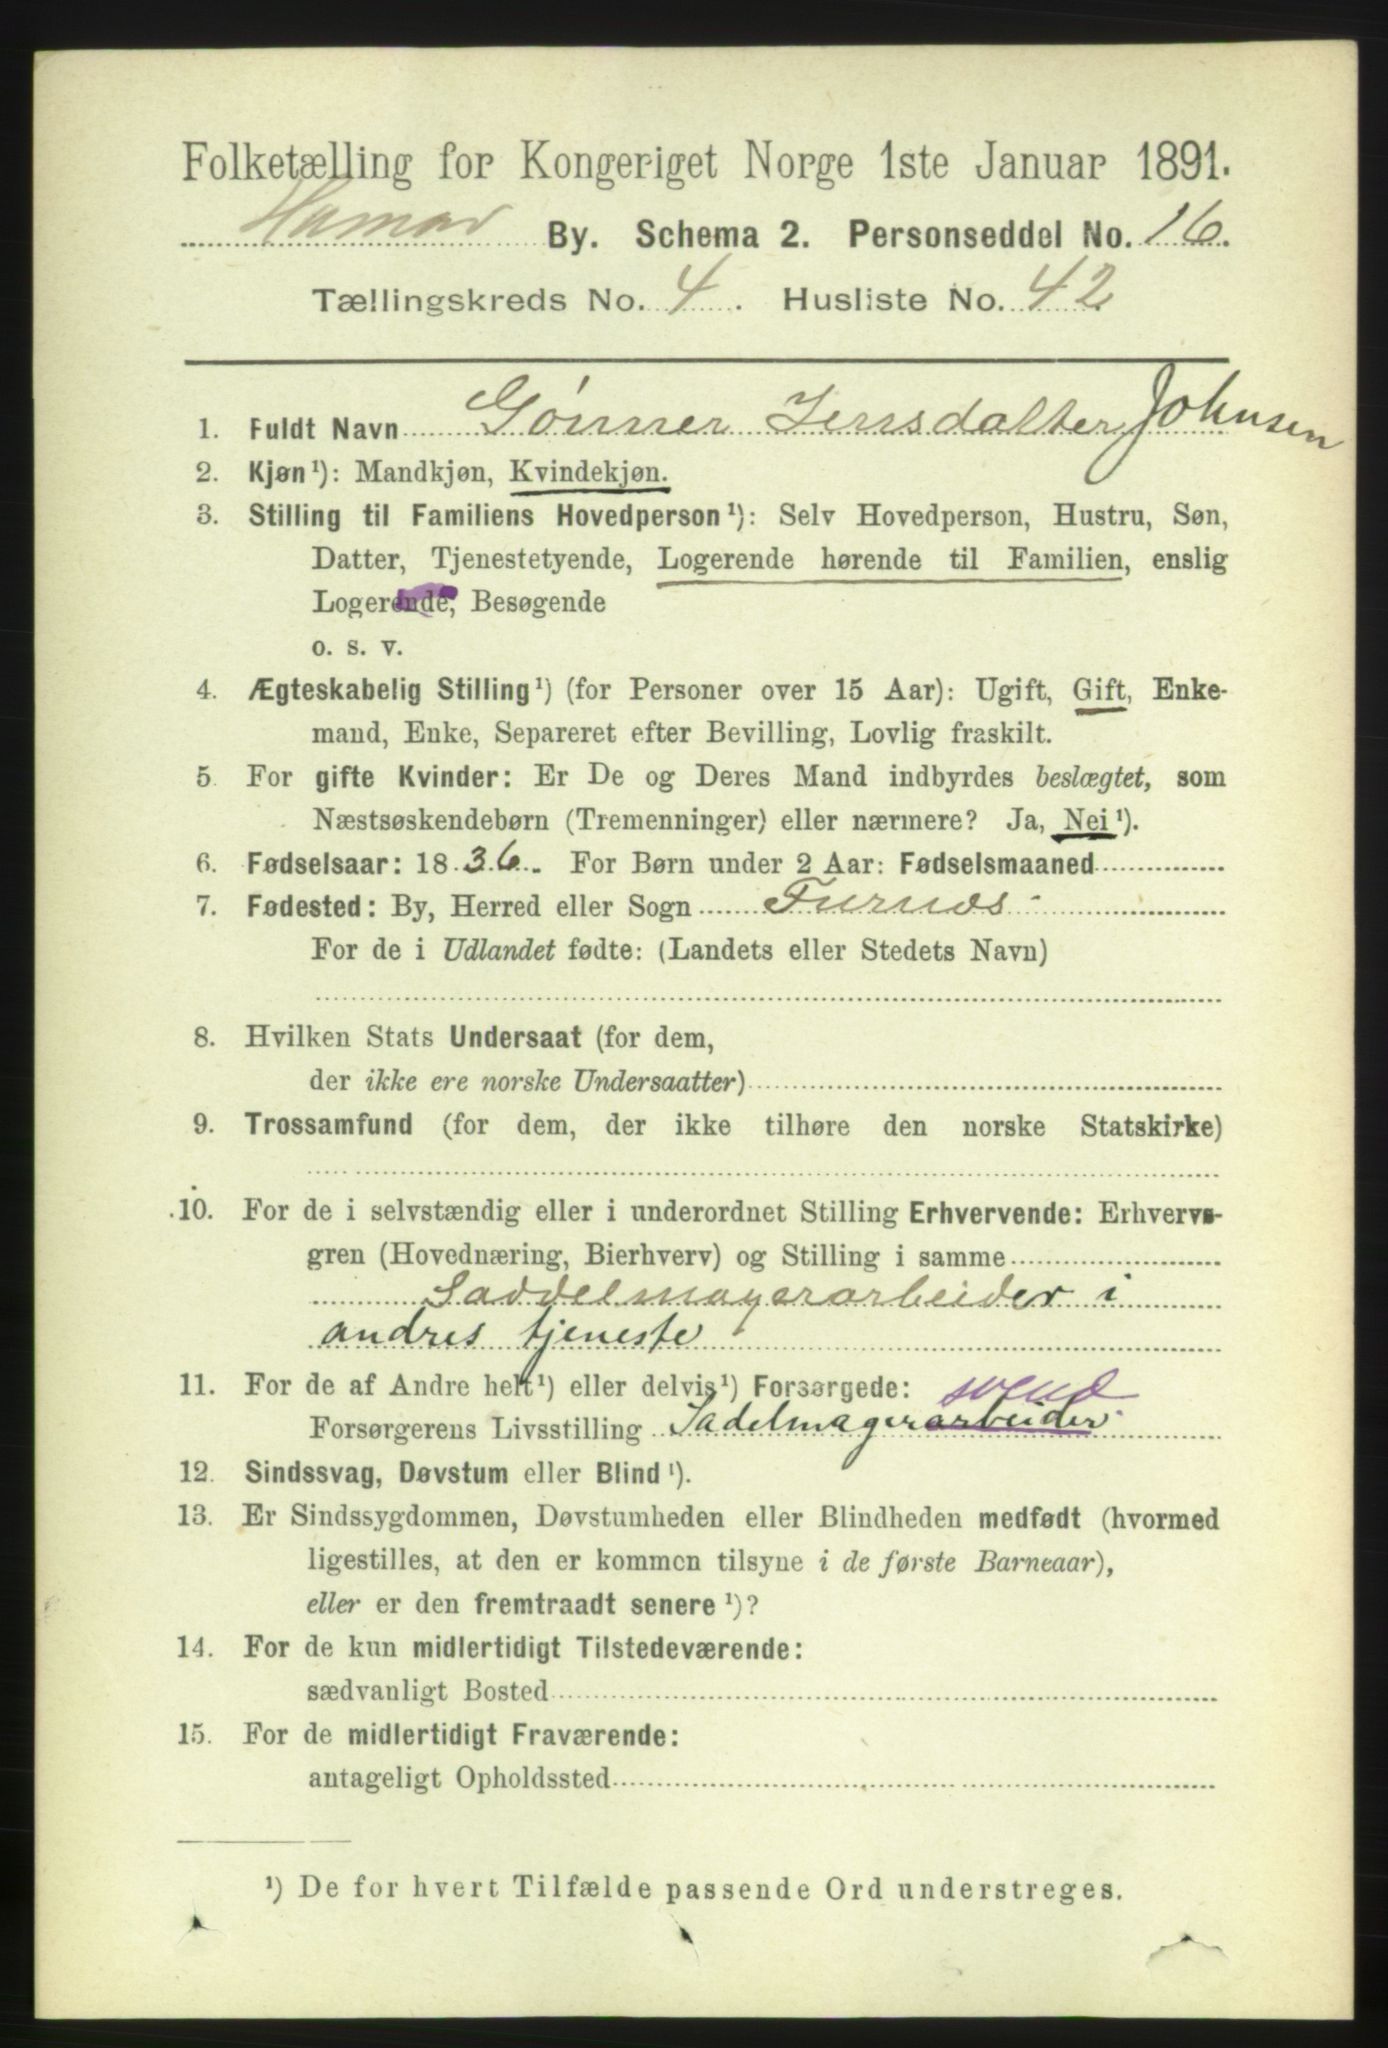 Folketælling for Kongeriget Norge 1ste Januar 1891.
Hamar By. Schema 2. Personseddel No. 16.
Tællingskreds No. 4. Husliste No. 42
1. Fuldt Navn Gønner Jensdatter Johnsen
2. Kjøn¹): Mandkjøn, Kvindekjøn.
3. Stilling til Familiens Hovedperson¹): Selv Hovedperson, Hustru, Søn,
Datter, Tjenestetyende, Logerende hørende til Familien, enslig
Logerende, Besøgende
o. s. v.
4. Ægteskabelig Stilling¹) (for Personer over 15 Aar): Ugift, Gift, Enke-
mand, Enke, Separeret efter Bevilling, Lovlig fraskilt.
5. For gifte Kvinder: Er De og Deres Mand indbyrdes beslægtet, som
Næstsøskendebørn (Tremenninger) eller nærmere? Ja, Nei¹).
6. Fødselsaar: 1836. For Børn under 2 Aar: Fødselsmaaned
7. Fødested: By, Herred eller Sogn Furnes
For de i Udlandet fødte: (Landets eller Stedets Navn)
8. Hvilken Stats Undersaat (for dem,
der ikke ere norske Undersaatter)
9. Trossamfund (for dem, der ikke tilhøre den norske Statskirke)
10. For de i selvstændig eller i underordnet Stilling Erhvervende: Erhvervs-
gren (Hovednæring, Bierhverv) og Stilling i samme
Saddelmagerarbeider i
andres tjeneste
11. For de af Andre helt¹) eller delvis¹) Forsørgede: svend
Forsørgerens Livsstilling Sadelmagerarbeider
12. Sindssvag, Døvstum eller Blind¹).
13. Er Sindssygdommen, Døvstumheden eller Blindheden medfødt (hvormed
ligestilles, at den er kommen tilsyne i de første Barneaar),
eller er den fremtraadt senere¹)?
14. For de kun midlertidigt Tilstedeværende:
sædvanligt Bosted
15. For de midlertidigt Fraværende:
antageligt Opholdssted
¹) De for hvert Tilfælde passende Ord understreges.